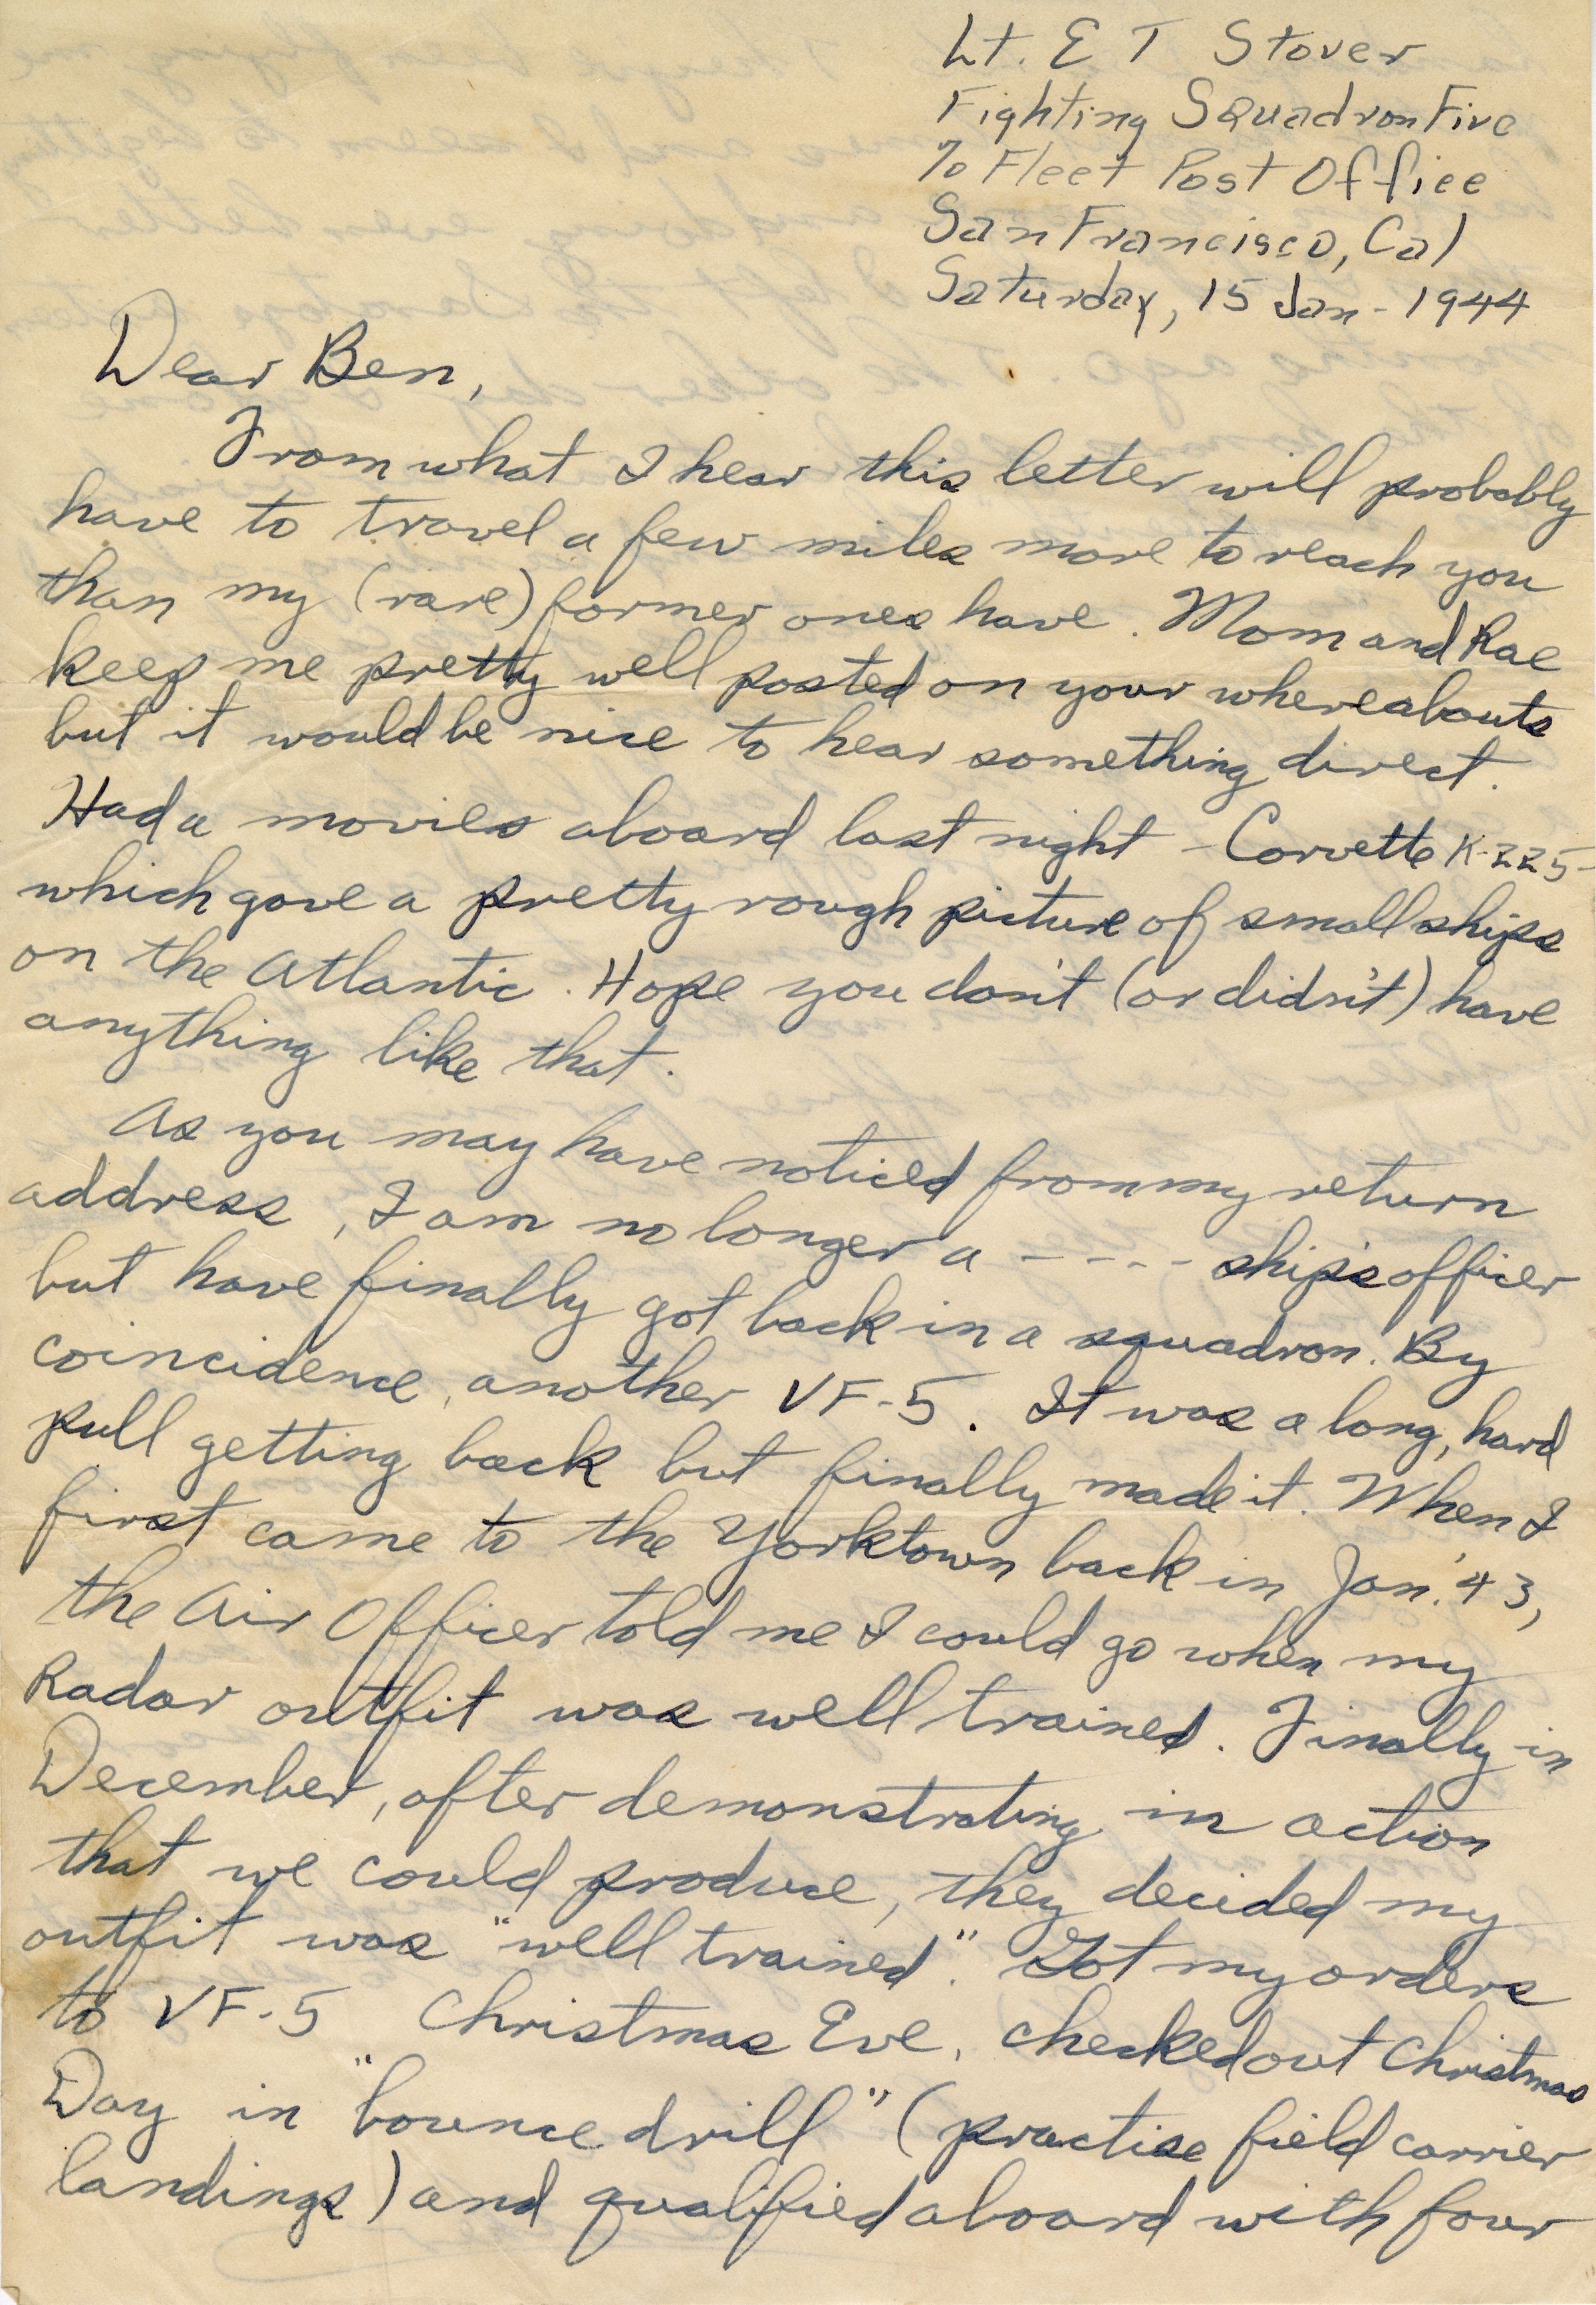 Lt. E T Stover
Fighting Squadron Five
℅ Fleet Post Office
San Francisco, Cal
Saturday, 15 Jan - 1944
Dear Ben,
From what I hear this letter will probably
have to travel a few miles more to reach you
than my (rare) former ones have. Mom and Rae
keep me pretty well posted on your whereabouts
but it would be nice to hear something direct.
Had a movies aboard last night - Corvette K-225 -
which gave a pretty rough picture of small ships
on the Atlantic. Hope you don't (or didn't) have
anything like that.
As you may have noticed from my return
address, I am no longer a ---- ship's officer
but have finally got back in a squadron. By
coincidence, another VF-5. It was a long, hard
pull getting back but finally made it. When I
first came to the Yorktown back in Jan. '43,
the Air Officer told me I could go when my
Radar outfit was well trained. Finally in
December, after demonstrating in action
that we could produce, they decided my
outfit was "well trained". Got my orders
to VF-5 Christmas Eve, checked out Christmas
Day in "bounce drill" (practise field carrier
landings) and qualified aboard with four